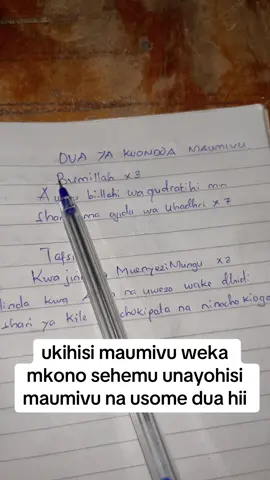 DUA YA KUONDOA MAUMIVU
Bismillah × 3
billahi wa qudratihi min
ma ajidu wa uhadhiri × 7
Tafsi
Kwa jin MwenyeziMungu × 3
linda kwa na uwezo wake dhidi
shari ya kile chokipata na ninachokiogo
ukihisi maumivu weka
mkono sehemu unayohisi
maumivu na usome dua hii